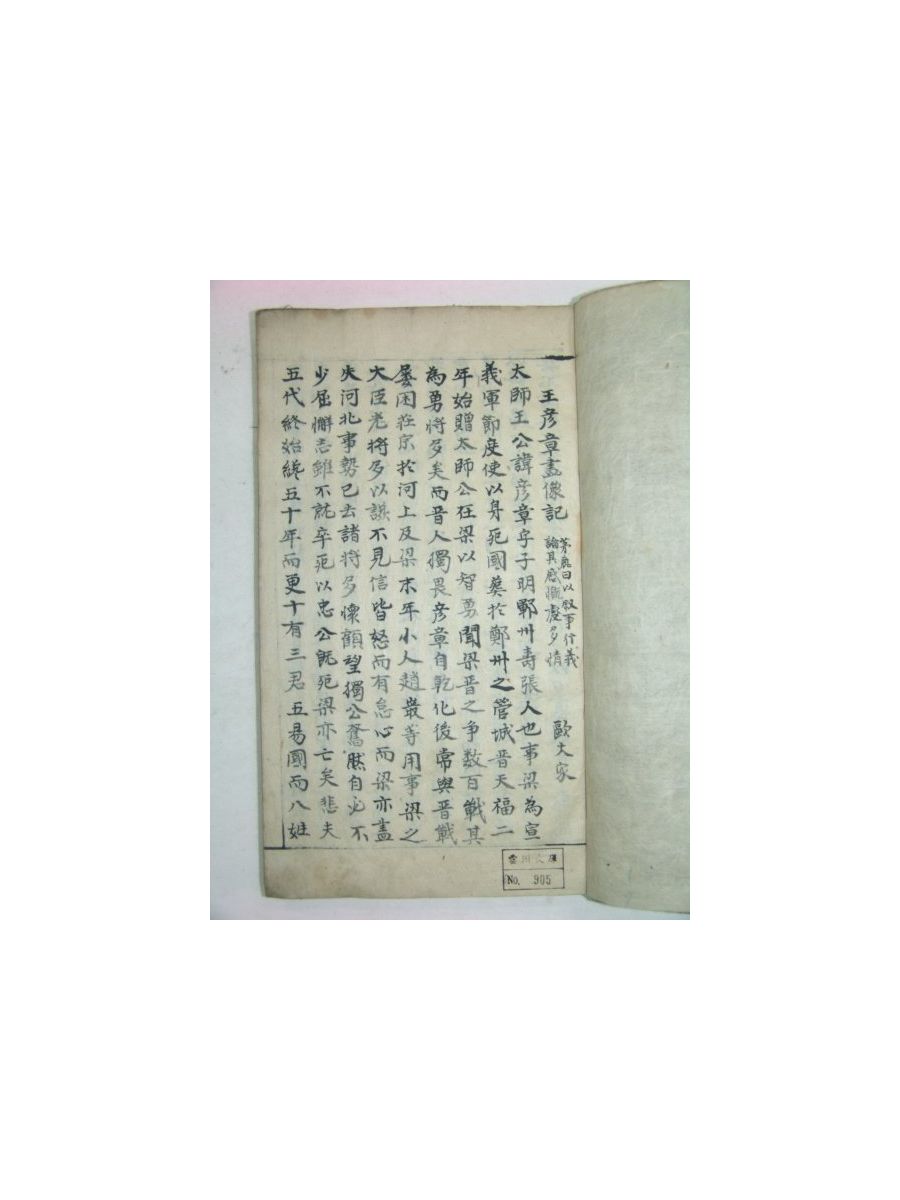 王彦章畫像記 茅鹿曰以叙事行議 歐大家
論其感慨處多情
太師王公諱彦章字子明鄆州壽張人也事梁為宣
義軍節度使以身死國葵於鄭州之管城晉天福二
年始贈太師公在梁以智勇聞梁晉之争数百戰其
為勇将多矣而晋人獨畏彦章自乾化後常與晋戰
屡困莊宗於河上及梁末年小人趙巖等用事梁之
大臣老将多以讒不見信皆怒而有怠心而梁亦盡
失河北事勢已去諸将多懷顧望獨公奮然自必不
少屈懈志雖不就卒死以忠公既死梁亦亡矣悲夫
五代終始終五十年而更十有三君五易國而八姓
文庫
No. 905